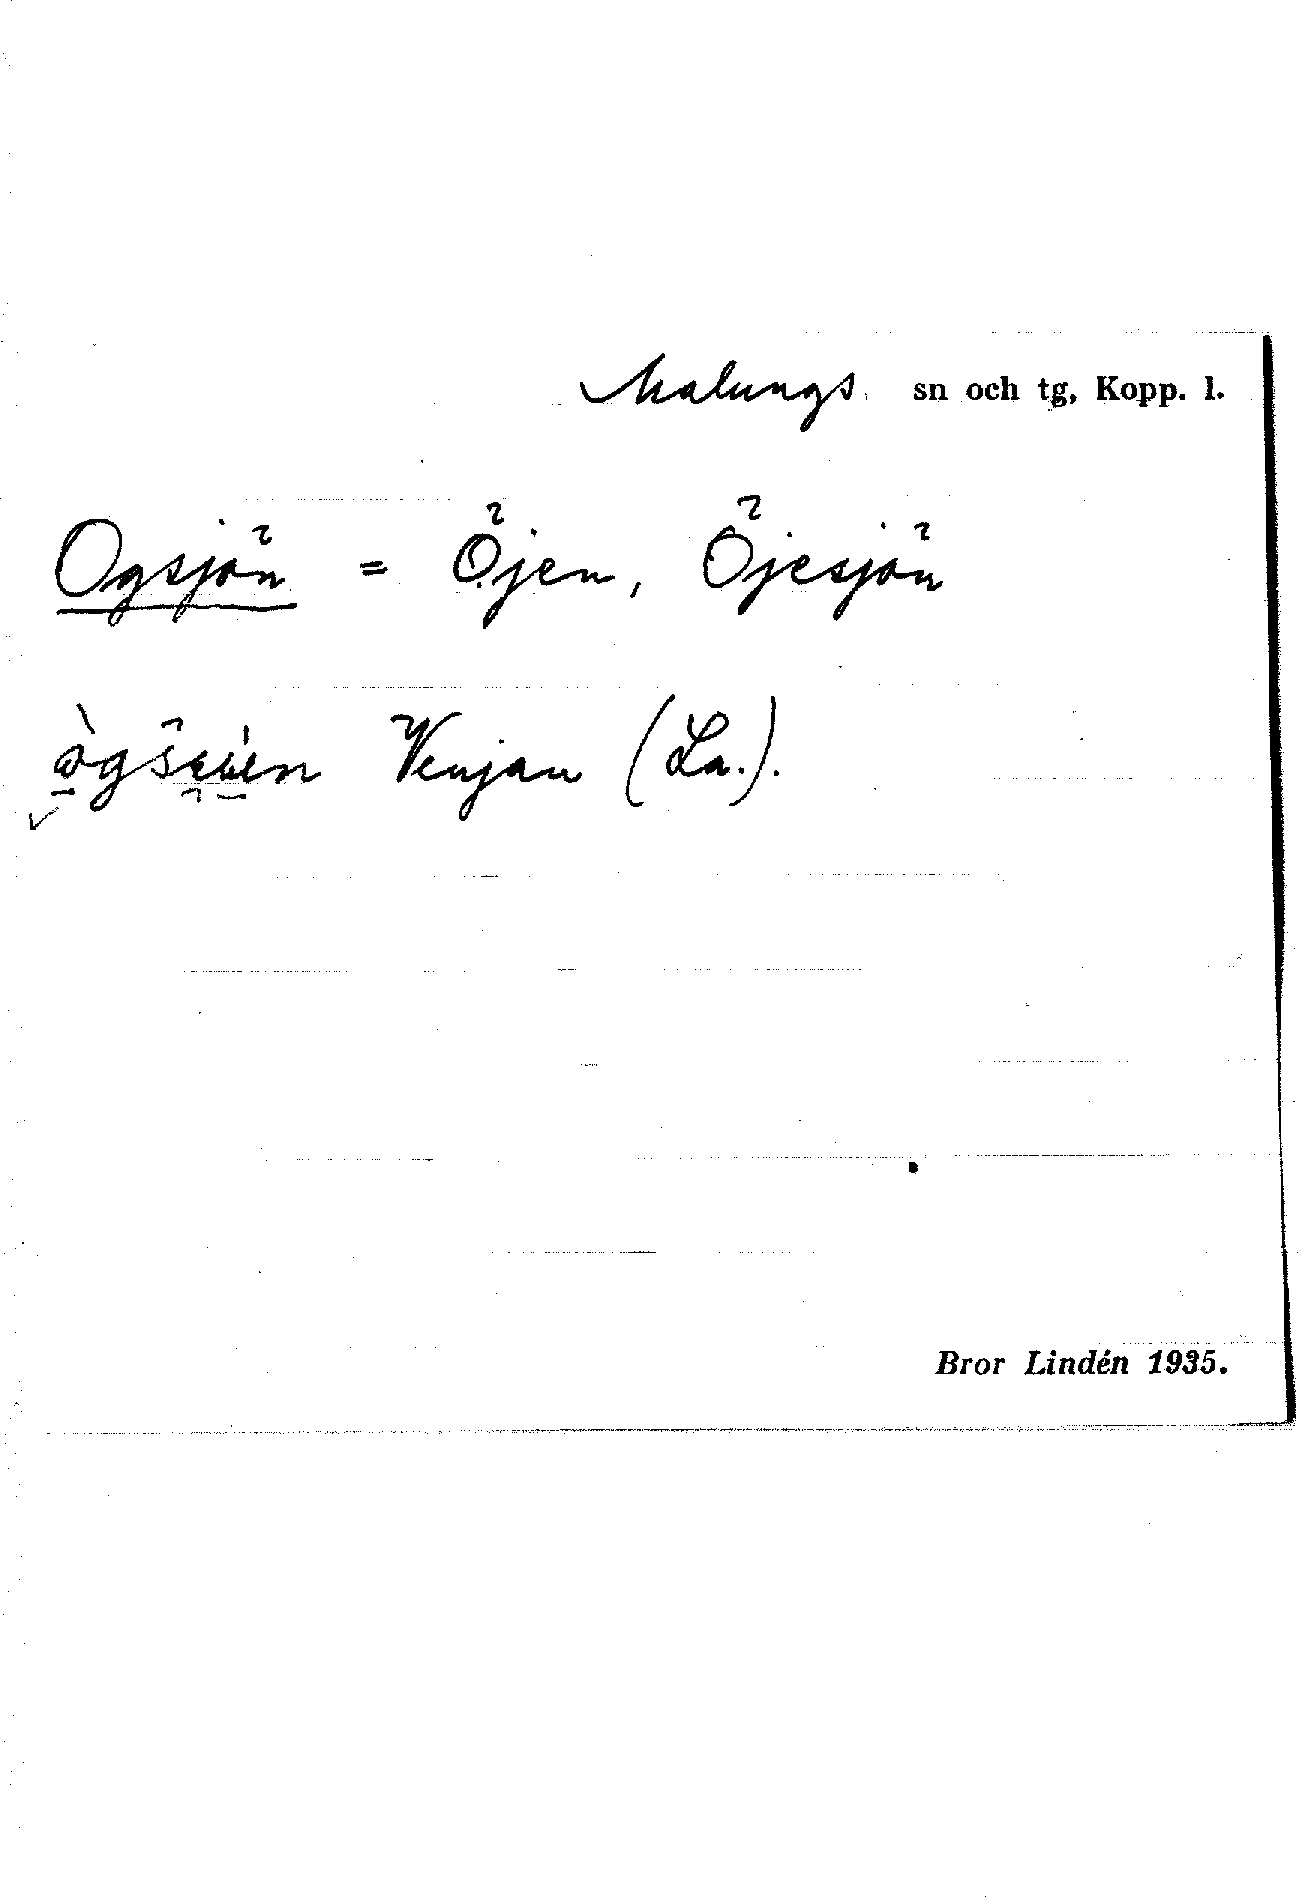 Malungs sn och tg, Kopp. l.
Ogsjön = Öjen, Öjesjön
Venjan (La.).
Bror Lindén 1935.